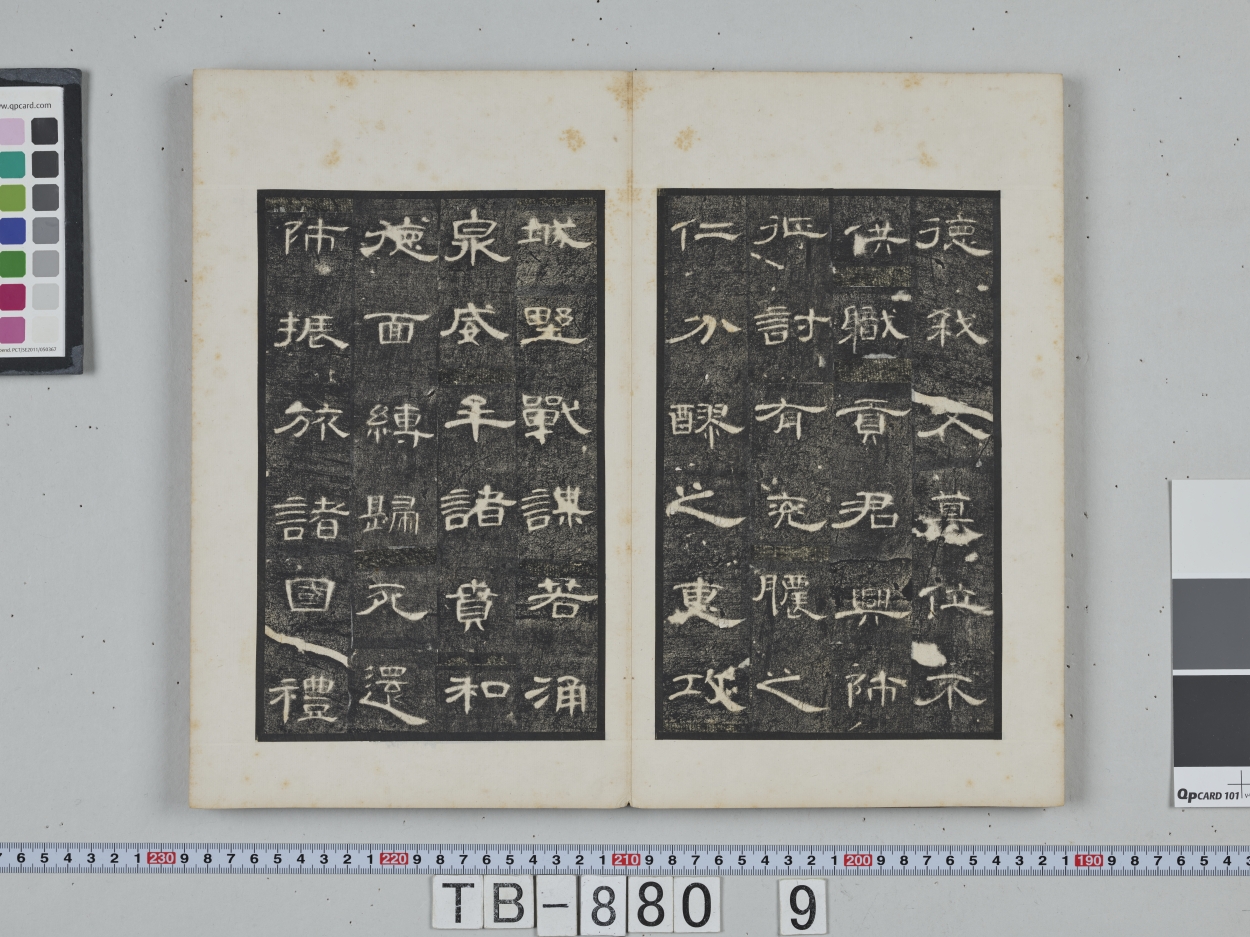 德弑父篡位不
供職貢君興師
征討有兖膿之
仁分醪之惠攻
城墅戰謀若涌
泉威牟諸賁和
德面縛歸死還
師振旅諸國禮
w.qpcard.com
QpCARD 101
7 6 5 4 3 2 1 230 9 8 7 6 5 4 3 2 1 220 9 8 7 6 5 4 3 2 1 210 9 8 7 6 5 4 3 2 1 200 9 8 7 6 5 4 3 2 1 190 9 8 7 6 5 4 3
TB-880 9